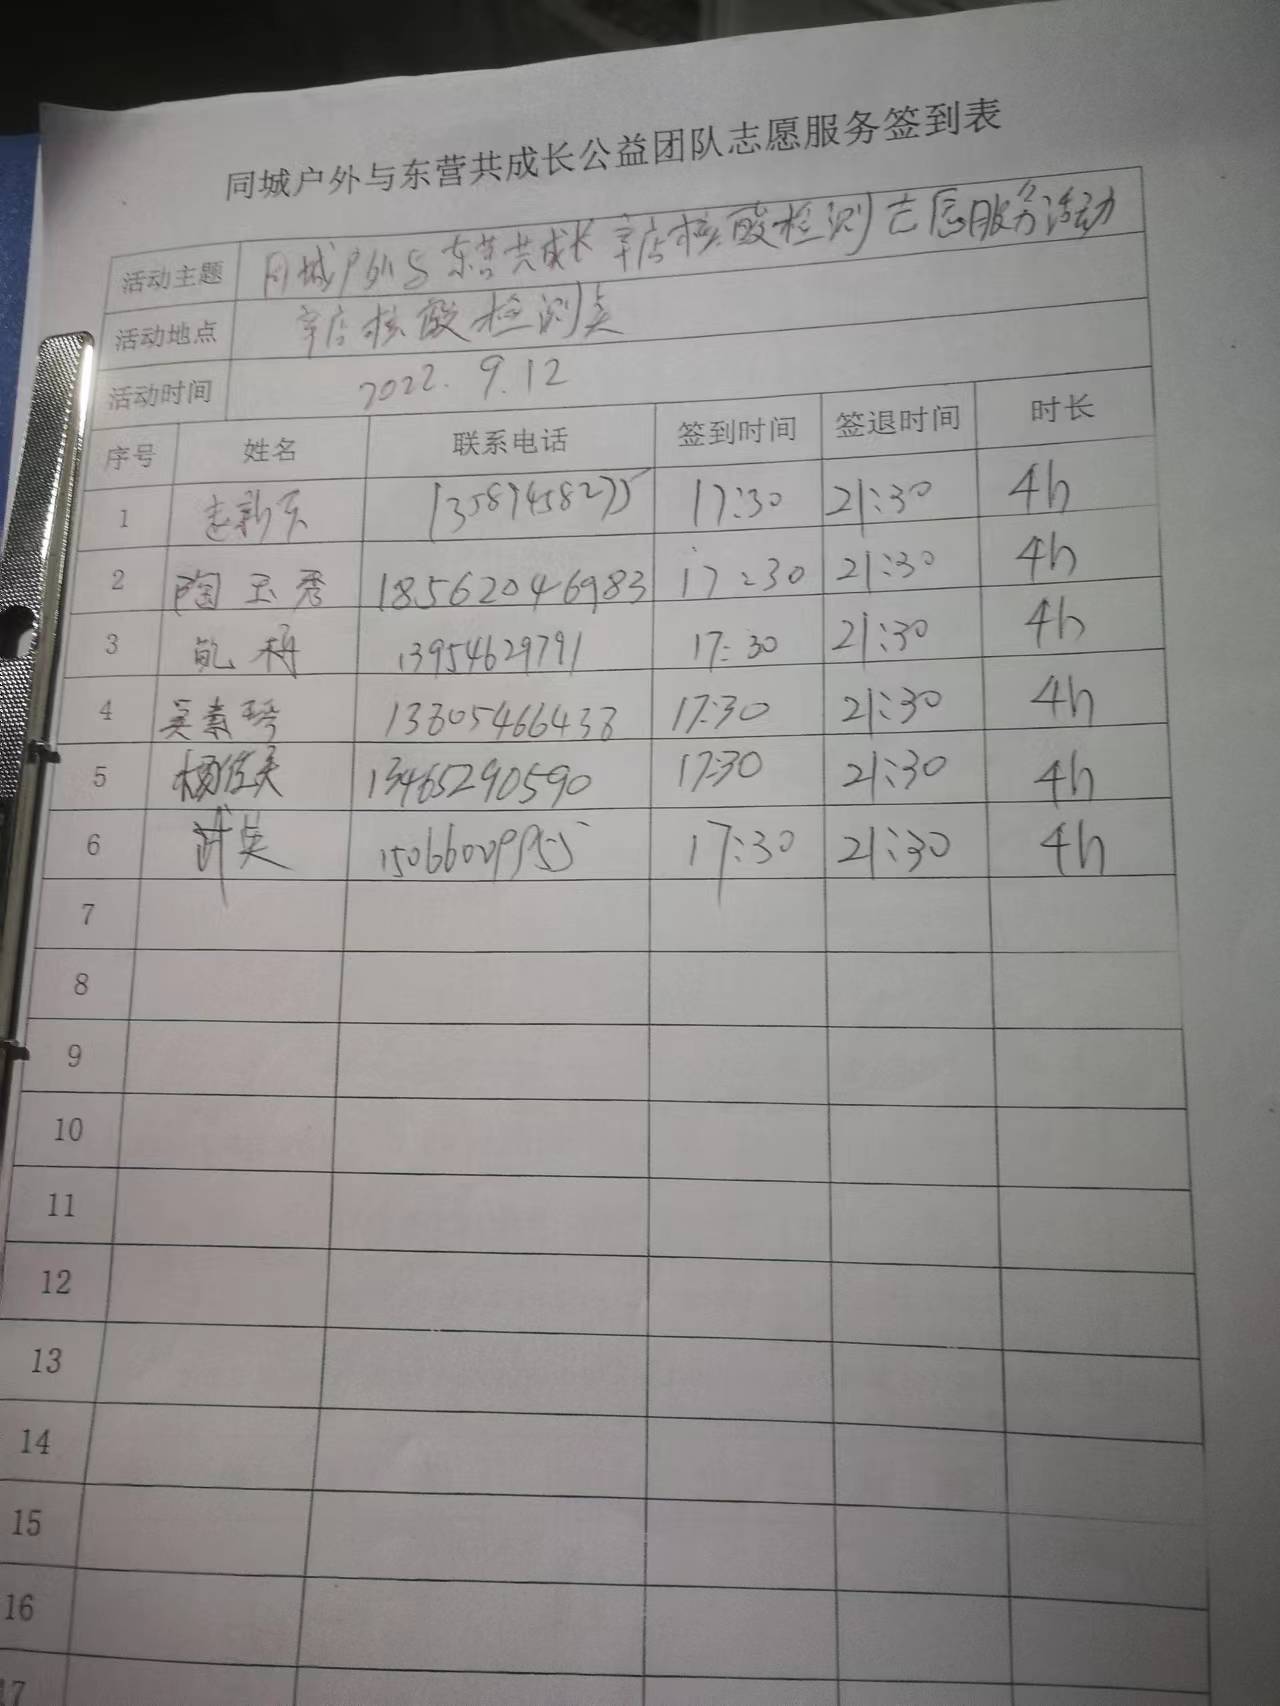 同城户外与东营共成长公益团队志愿服务签到表
活动主题 同城户外与东营共成长辛店核酸检测志愿服务活动
活动地点 辛店核酸检测点
活动时间 2022.9.12
序号 姓名 联系电话 签到时间 签退时间 时长
1 13587458275 17:30 21:30 4h
2 陶玉秀 18562046983 17:30 21:30 4h
3 13954629791 17:30 21:30 4h
4 吴素琴 13305466438 17:30 21:30 4h
5 13465290590 17:30 21:30 4h
6 武英 15066009955 17:30 21:30 4h
7
8
9
10
11
12
13
14
15
16
17